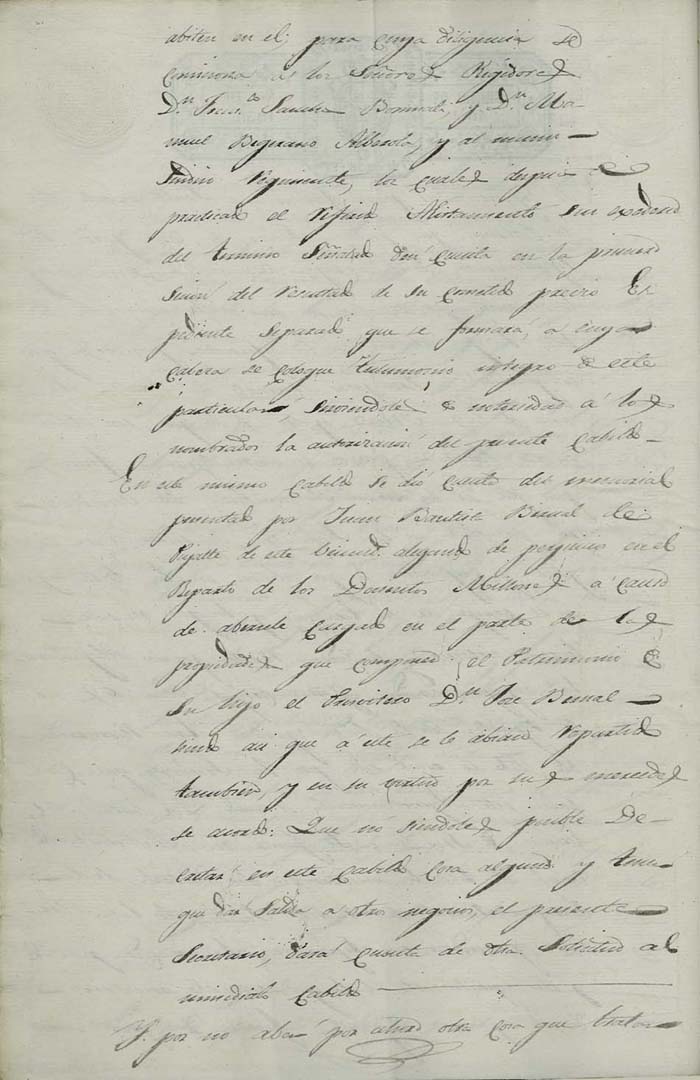 abiten en el; para cuya diligencia se
comisiona a los Señores Regidores
D.n Fran.co Sanches Bermal, y D.n Ma-
nuel Alberola, y al mismo
Sindico, los cuales despues
practicado el Alistamiento sin exceder
del termino Señalado den Cuenta en la primera
del Resultado de su cometido previo Es
pediente Separado que se formará, a cuya
Cabeza se coloque testimonio integro de este
particular, sirviendole de a los
nombrados la autorizacion del presente Cabildo
En este mismo Cabildo se dio cuenta del memorial
presentado por Juan Bautista Bernal de
de este alegando de perjuicio en el
Reparto de los Doscientos Millones á causa
de aberle Cargado en el parte de las
propiedades que componen el Patrimonio de
Su hijo el Presvitero D.n Jose Bernal
siendo asi que á este se le abian repartido
tambien, y en su por sus mercedes
se acordó: Que no siendoles posible De-
cretar en este Cabildo cosa alguna y tener
que dar Salida a otros negocios, el presente
Secretario, dará Cuenta de otra Solicitud al
inmediato Cabildo
Y por no aber por ahora otra Cosa que tratar